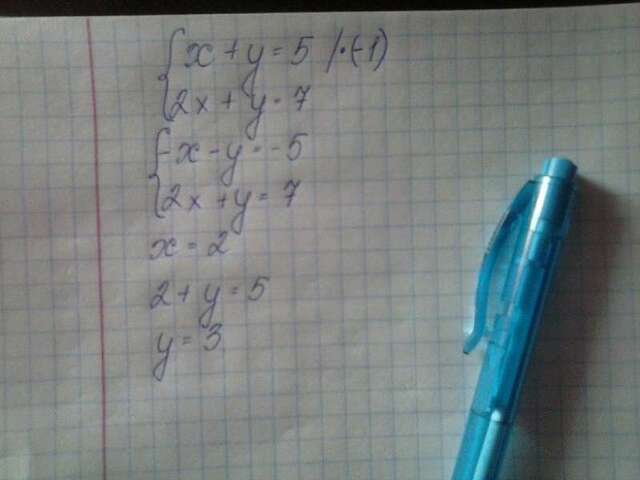 { x + y = 5 /·(-1)
2x + y = 7
{ -x - y = -5
2x + y = 7
x = 2
2 + y = 5
y = 3